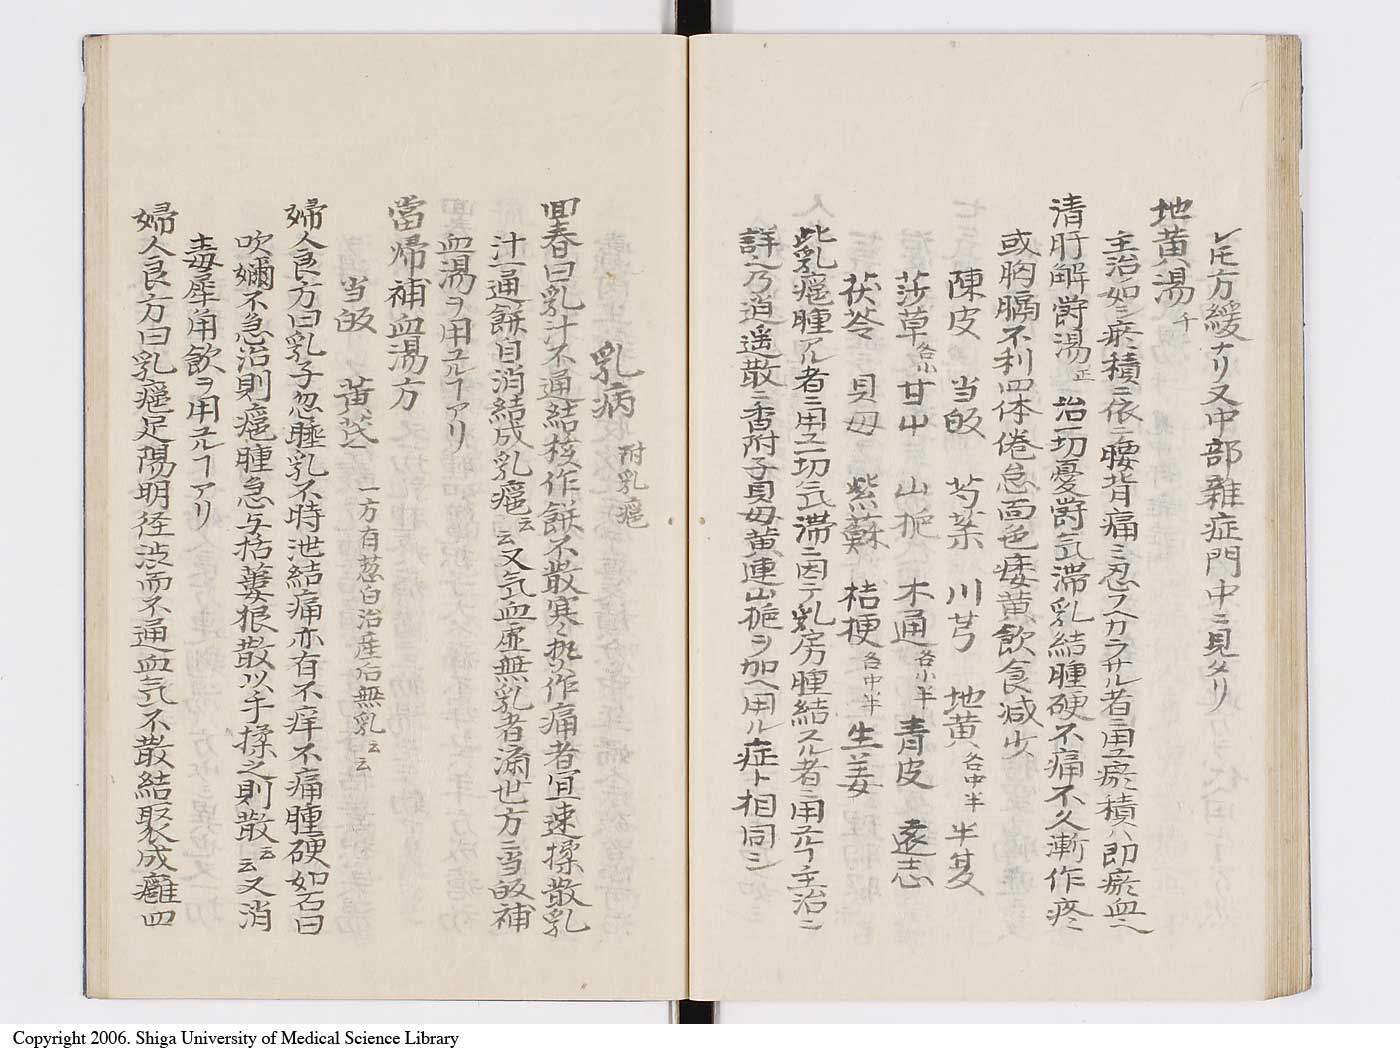 レ𪜈方緩ナリ又中部雜症門中ニ見タリ
地黄湯千
主治如シ瘀積ニ依テ腰背痛ミ忍フヘカラサル者ニ用ユ瘀積ハ即瘀血也
清肝解欝湯正 治一切憂欝気滞乳結腫硬不痛不久漸作疼
或胸膈不利四体倦怠面色痿黄飲食減少
陳皮 当皈 芍薬 川芎 地黄各中半 半夏
莎草各小 甘艸 山梔 木通各小半 青皮 遠志
茯苓 貝毋 紫蘇 桔梗各中半 生姜
此乳癰腫アル者ニ用ユ一切気滞ニ因テ乳房腫結スル者ニ用ユルヿ主治ニ
詳也乃逍遥散ニ香附子貝毋黄連山梔ヲ加ヘ用ル症ト相同シ
乳病 附乳癰
回春曰乳汁不通結核作餅不散寒熱作痛者宜速揉散乳
汁一通餅自消結成乳癰云云又気血虚無乳者済世方ニ当皈補
血湯ヲ用ユルヿアリ
當帰補血湯方
当皈 黄芪 一方有葱白治産后無乳云云
婦人良方曰乳子忽睡乳不時泄結痛亦有不痒不痛腫硬如石曰
吹嬭不急治則癰腫急与括蔞根散以手揉之則散云云又消
毒犀角飲ヲ用ユルヿアリ
婦人良方曰乳癰足陽明径渋而不通血気不散結聚成癰血